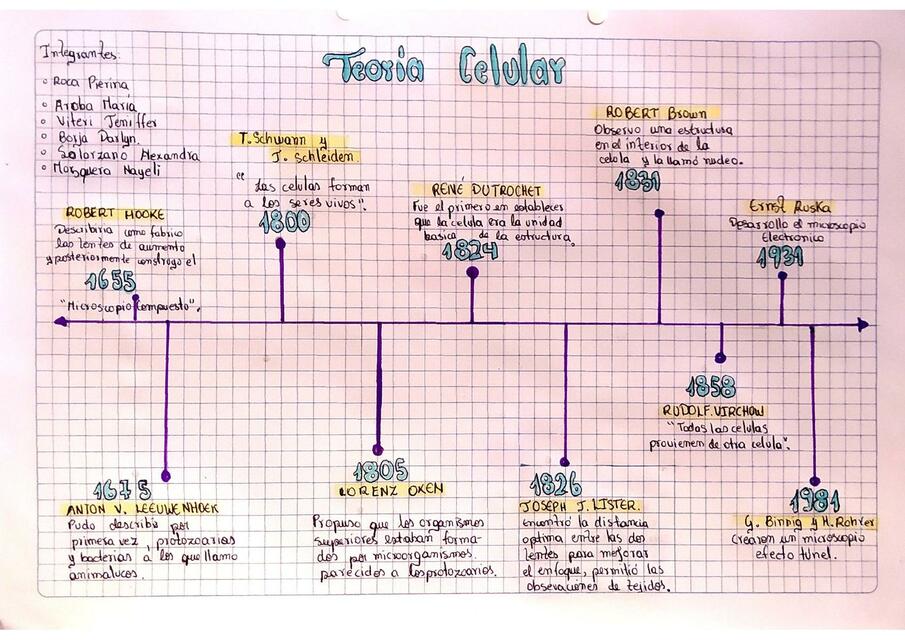 Teoria Celular
Integrantes:
Roca Pierina
Aroba Maria
Viteri Jeniffer
Borja Darlyn.
Solorzano Alexandra
Mosquera Nayeli
ROBERT HOOKE
Describiria como fabrico
las lentes de aumento
y posteriormente construyo el
1655
"Microscopio Compuesto".
T. Schwann y
J. Schleiden.
"Las celulas forman
a los seres vivos".
1800
RENÉ DUTROCHET
Fue el primero en establecer
que la celula era la unidad
basica de la estructura.
1824
ROBERT Brown
Observo una estructura
en el interior de la
celola y la llamó nucleo.
1831
Ernst Ruska
Desarrollo el microscopio
Electronico
1931
1675
ANTON V. LEEUWENHOEK
Pudo describir por
primera vez, protozoarias
y bacterias a los que llamo
animaluces.
1805
LORENZ OKEN
Propuso que los organismos
superiores estaban forma-
dos por microorganismos.
parecidos a los protozoarios.
1826
JOSEPH J. LISTER.
encontró la distancia
optima entre las dos
lentes para mejorar
el enfoque, permitió las
observaciones de tejidos.
1858
RUDOLF.VIRCHOW
"Todas las celulas
provienen de otra celula".
1981
G. Binnig y H. Rohrer
Crearon un microscopio
efecto tunel.